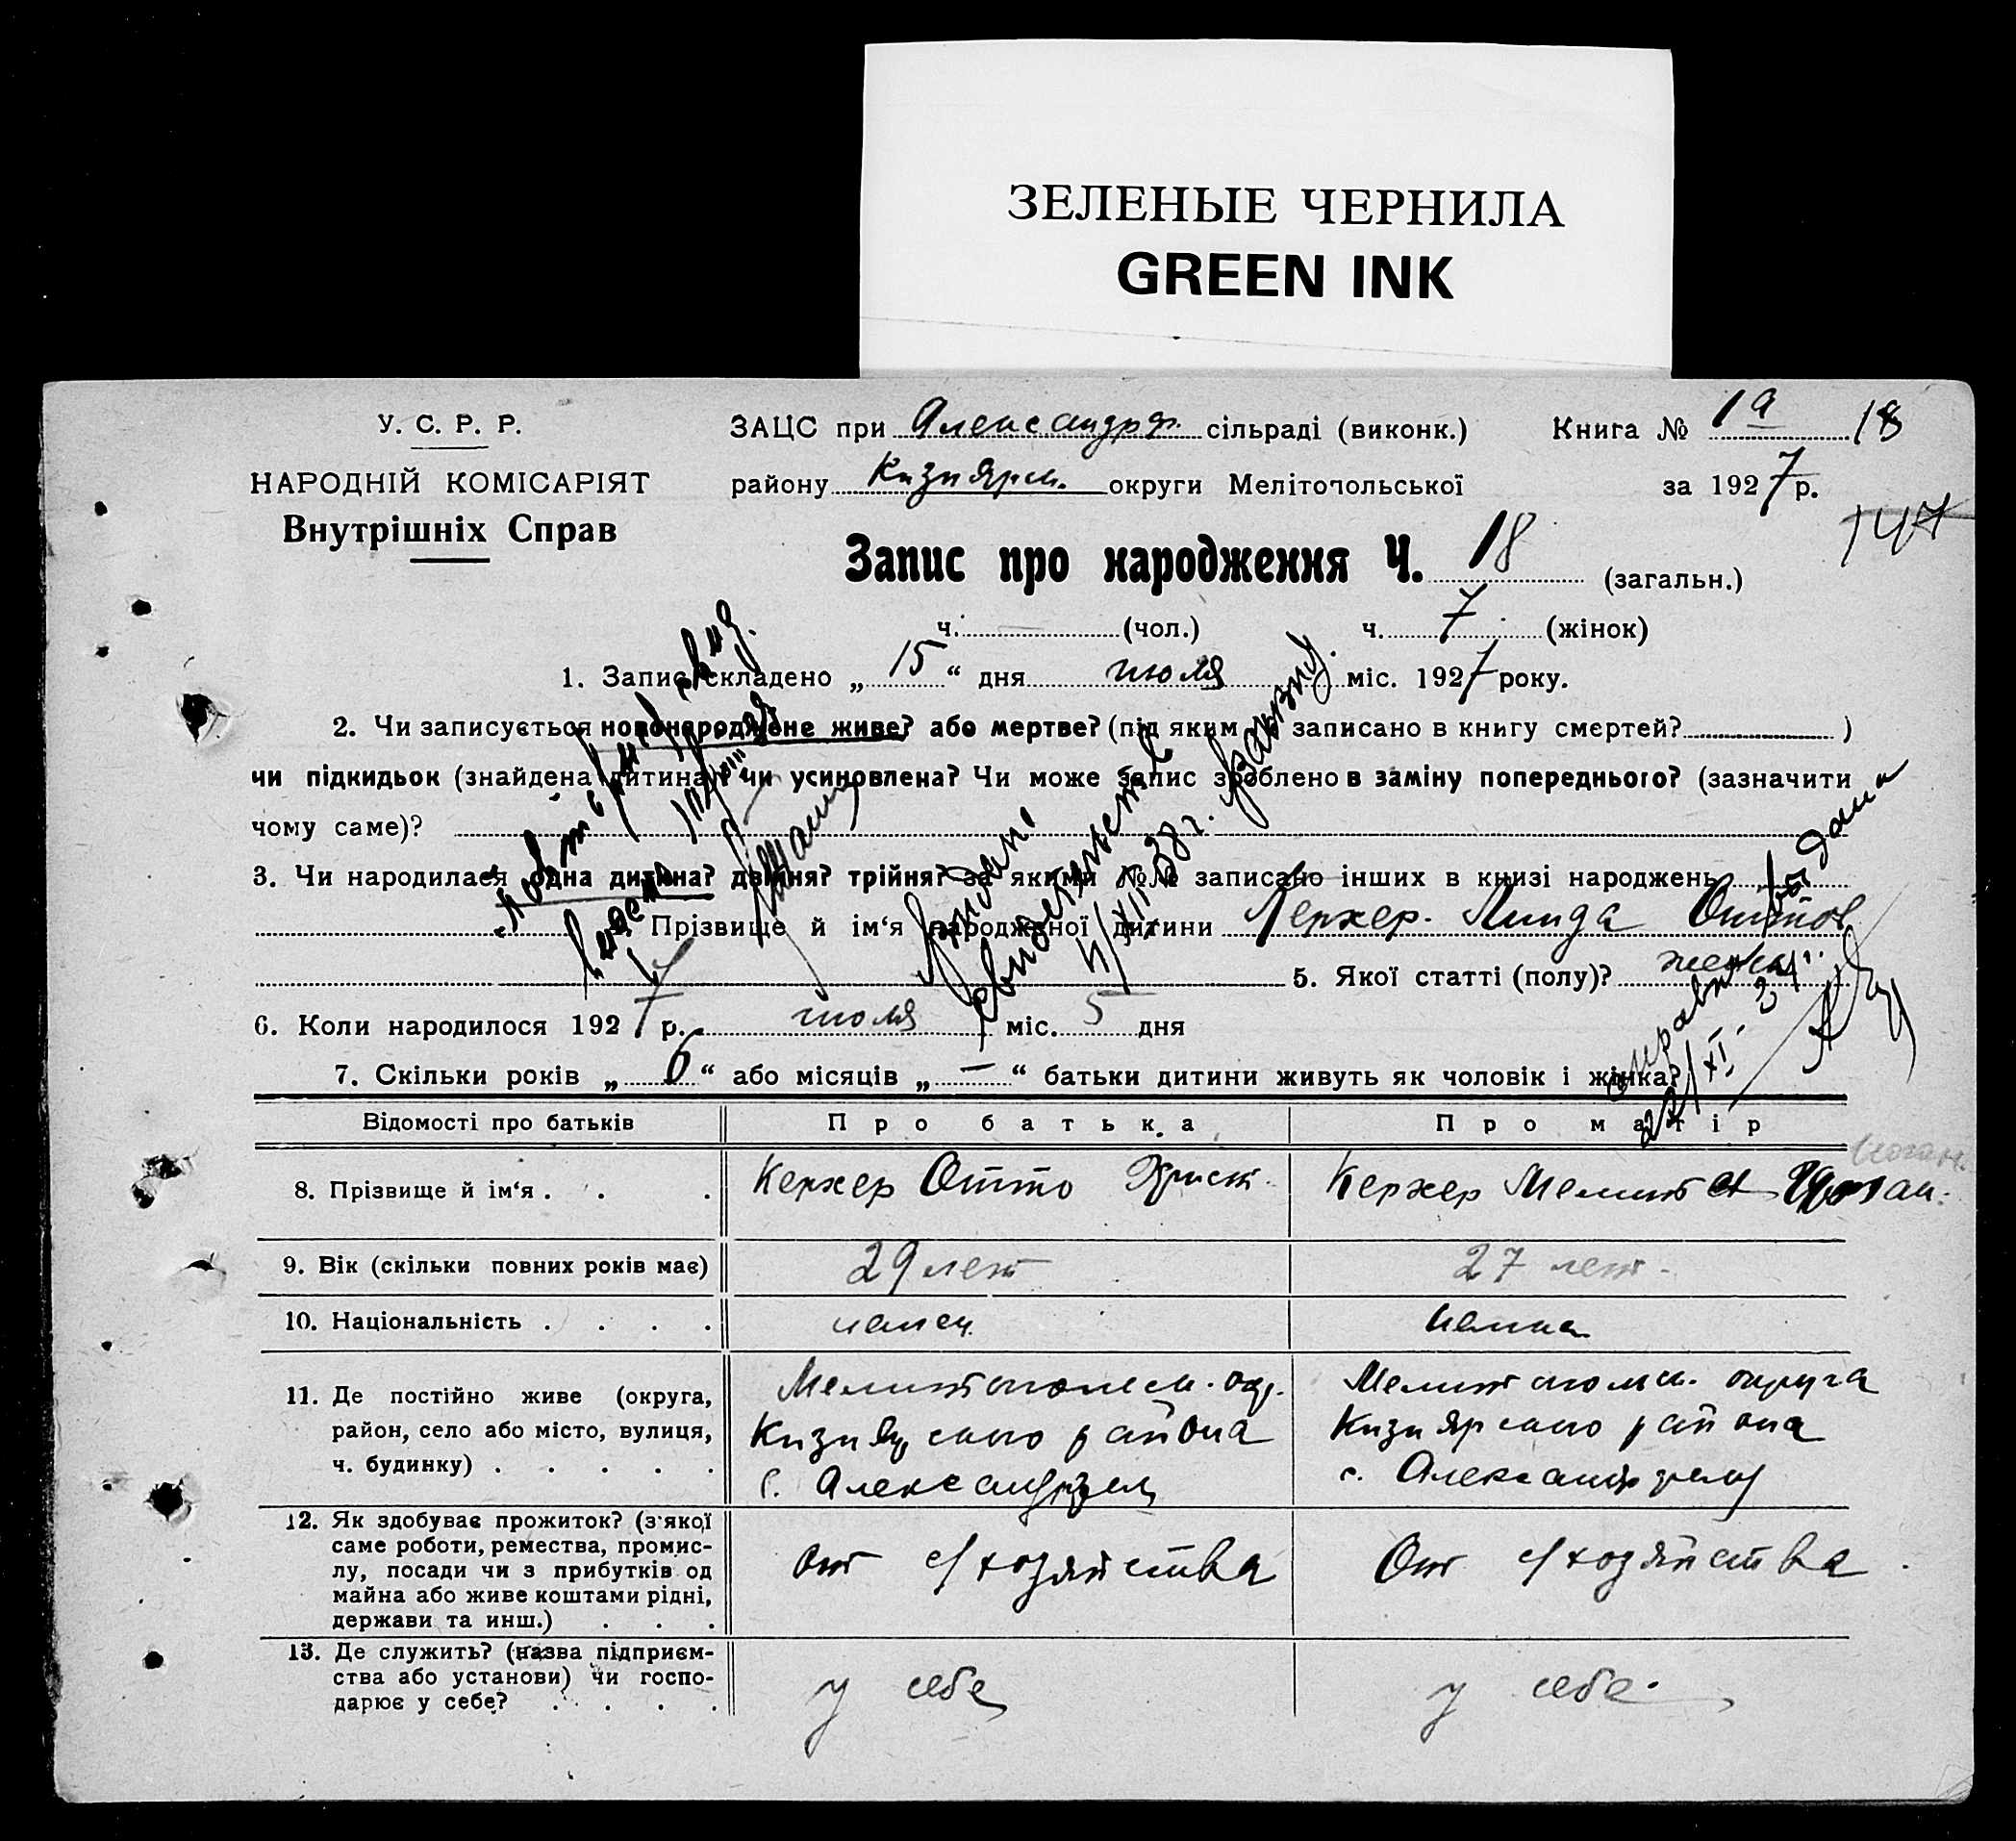 ЗЕЛЕНЫЕ ЧЕРНИЛА
GREEN INK
У. С. Р. Р.
НАРОДНІЙ КОМІСАРІЯТ
Внутрішніх Справ
ЗАЦС при Александрф. сільраді (виконк.) Книга № 1а 18
району Кизиярск. округи Мелітопольської за 1927 р.
147
Запис про народження Ч. 18 (загальн.)
ч. — (чол.) ч. 7 (жінок)
1. Запис складено „ 15 “ дня июля міс. 1927 року.
2. Чи записується новонароджене живе? або мертве? (під яким № записано в книгу смертей? )
чи підкидьок (знайдена дитина)? чи усиновлена? Чи може запис зроблено в заміну попереднього? (зазначити
чому саме)?
3. Чи народилася одна дитина? двійня? трійня? за якими №№ записано інших в книзі народжень
4. Прізвище й ім‘я народженої дитини Керхер. Линда Оттов
5. Якої статті (полу)? женск.
6. Коли народилося 1927 р. июля міс. 5 дня
7. Скільки років „ 6 “ або місяців „ — “ батьки дитини живуть як чоловік і жінка?
повторн.
Видано
свидетельство
4/XII 38 г.
Выдана
справка
22/XI-34
Відомості про батьків Про батька Про матір
8. Прізвище й ім‘я . . . Керхер Отто Христ. Керхер Мелита
9. Вік (скільки повних років має) 29 лет 27 лет
10. Національність . . . . немец немка
11. Де постійно живе (округа, район, село або місто, вулиця, ч. будинку) . . . . .
Мелитопольск. окр. Мелитопольск. округа
Кизиярского района Кизиярского района
с. Александрфельд с. Александрфельд
12. Як здобуває прожиток? (з‘якої саме роботи, ремества, промислу, посади чи з прибутків од майна або живе коштами рідні, держави та инш.) . . .
от с/хозяйства От с/хозяйства
13. Де служить? (назва підприємства або установи) чи господарює у себе? . . . .
у себе у себе